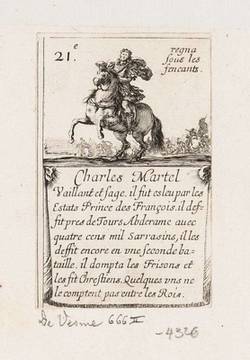 21.e
regna
sous les
feneants.
Charles Martel
Vaillant et sage. il fut esleu par les
Estats Prince des François. il def-
fit pres de Tours Abderame avec
quatre cens mil Sarrasins, il les
deffit encore en vne seconde ba-
taille. il dompta les Frisons et
les fit Chrestiens. Quelques vns ne
le comptent pas entre les Rois.
De Vesme 666 II
-4326